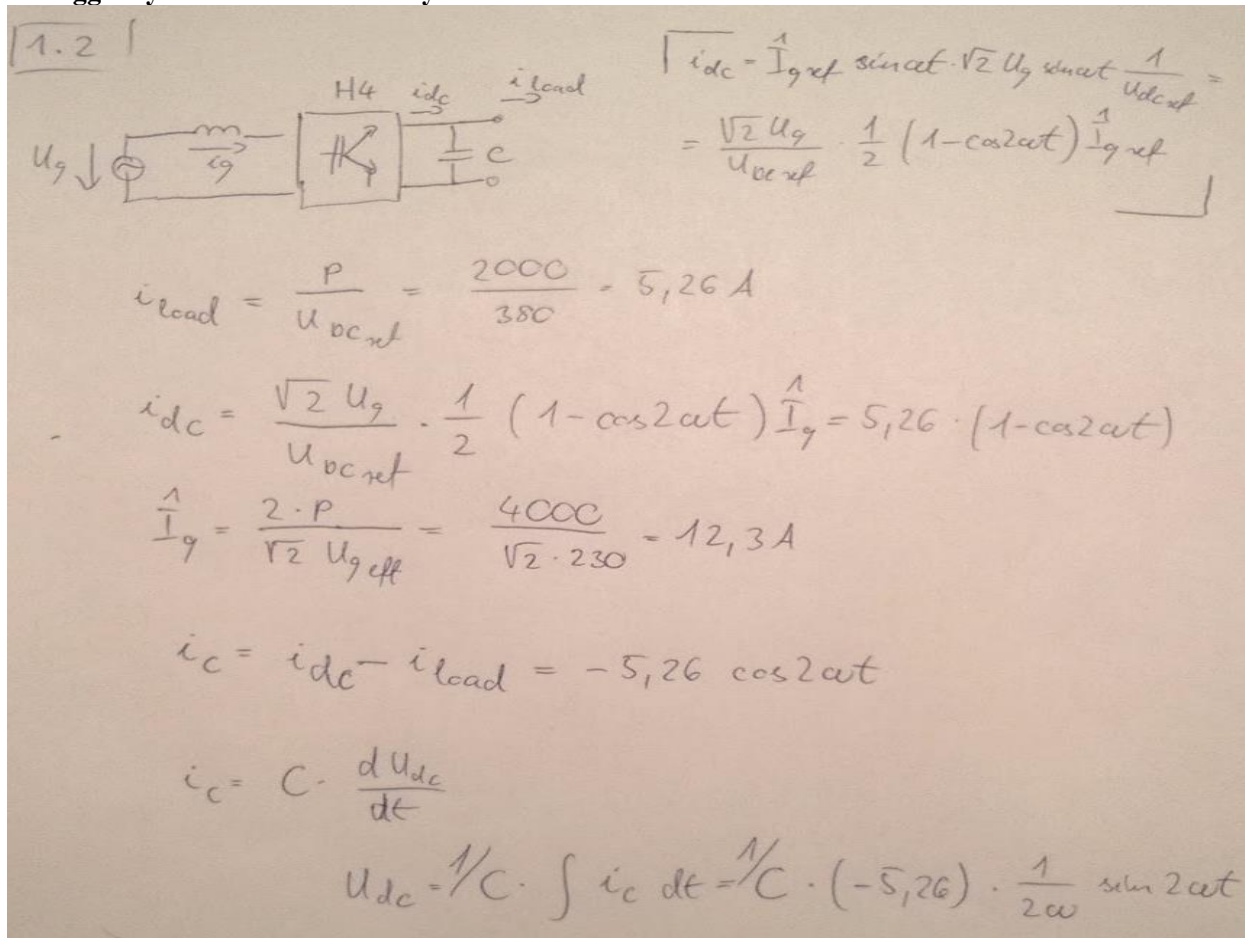 1.2
H4 idc iload
Ug ig C
idc = Îg ref sin ωt · √2 Ug sin ωt 1/Udc ref =
= √2 Ug / UDC ref · 1/2 (1-cos2ωt) Îg ref
iload = P / UDC ref = 2000 / 380 = 5,26 A
idc = √2 Ug / UDC ref · 1/2 (1-cos2ωt) Îg = 5,26 · (1-cos2ωt)
Îg = 2·P / √2 Ug eff = 4000 / √2·230 = 12,3 A
ic = idc - iload = -5,26 cos2ωt
ic = C · dUdc / dt
Udc = 1/C · ∫ ic dt = 1/C · (-5,26) · 1/2ω sin 2ωt